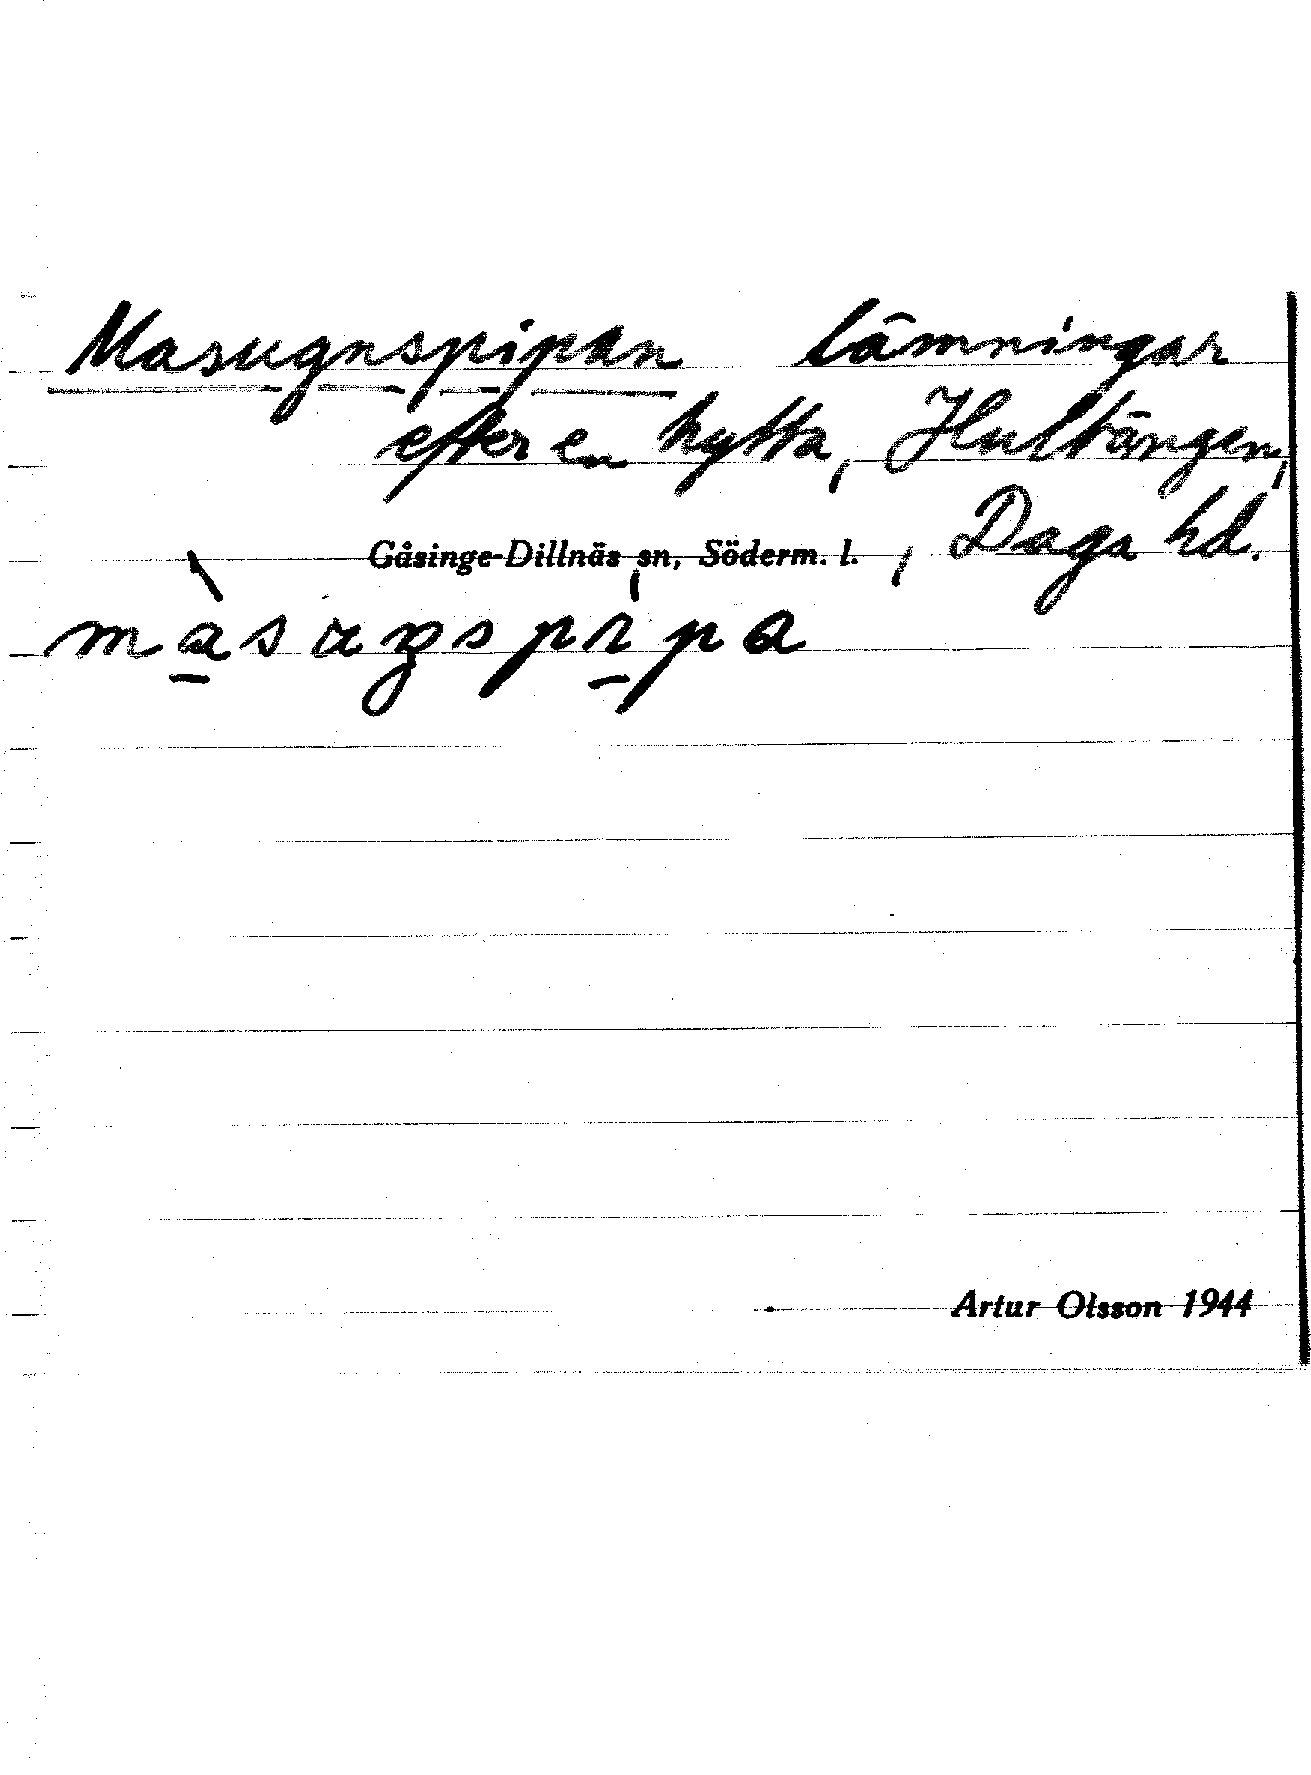 Masugnspipan lämningar
efter en hytta, Hultängen,
Gåsinge-Dillnäs sn, Söderm. l. , Daga hd.
Artur Olsson 1944